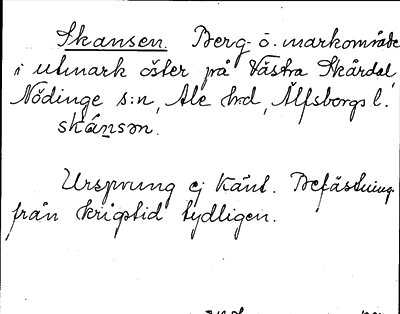 Skansen. Berg- o. markområde
i utmark öster på Västra Skårdal,
Nödinge s:n, Ale hrd, Älfsborgs l.
skánsən.
Ursprung ej känt. Befästning
från krigstid tydligen.